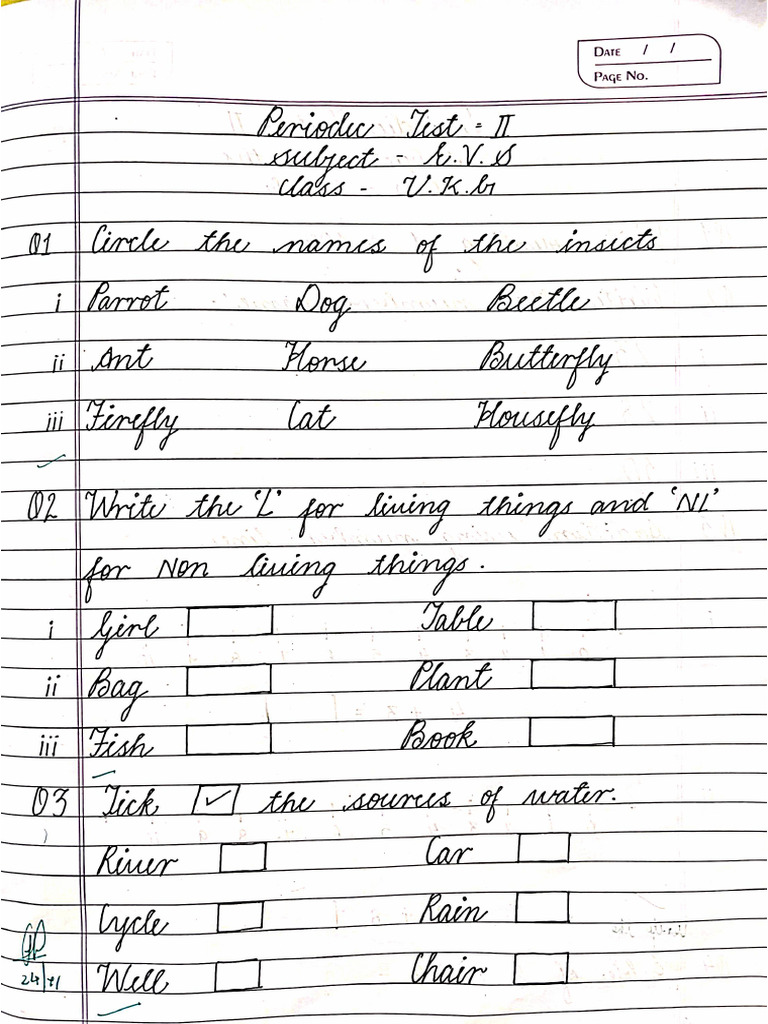 DATE / /
PAGE NO.
Periodic Test - II
subject - E.V.S
class - U.K.G
Q1 Circle the names of the insects
i Parrot Dog Beetle
ii Ant Horse Butterfly
iii Firefly Cat Housefly
Q2 Write the 'L' for living things and 'NL'
for Non living things.
i Girl Table
ii Bag Plant
iii Fish Book
Q3 Tick ✓ the sources of water.
River Car
Cycle Rain
Well Chair